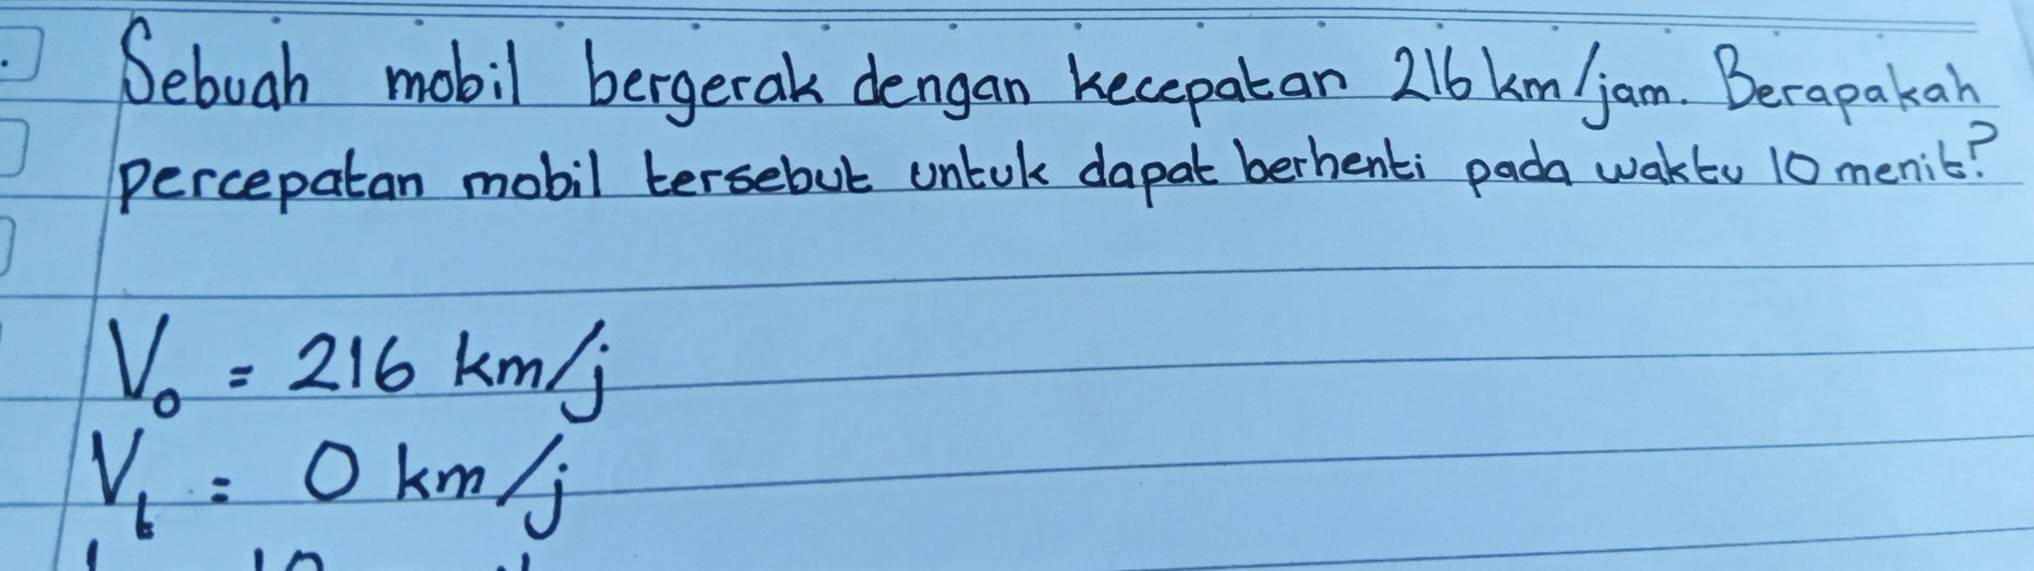 Sebuah mobil bergerak dengan kecepatan 216 km/jam. Berapakah
percepatan mobil tersebut untuk dapat berhenti pada waktu 10 menit?
V₀ = 216 km/j
Vₜ = 0 km/j